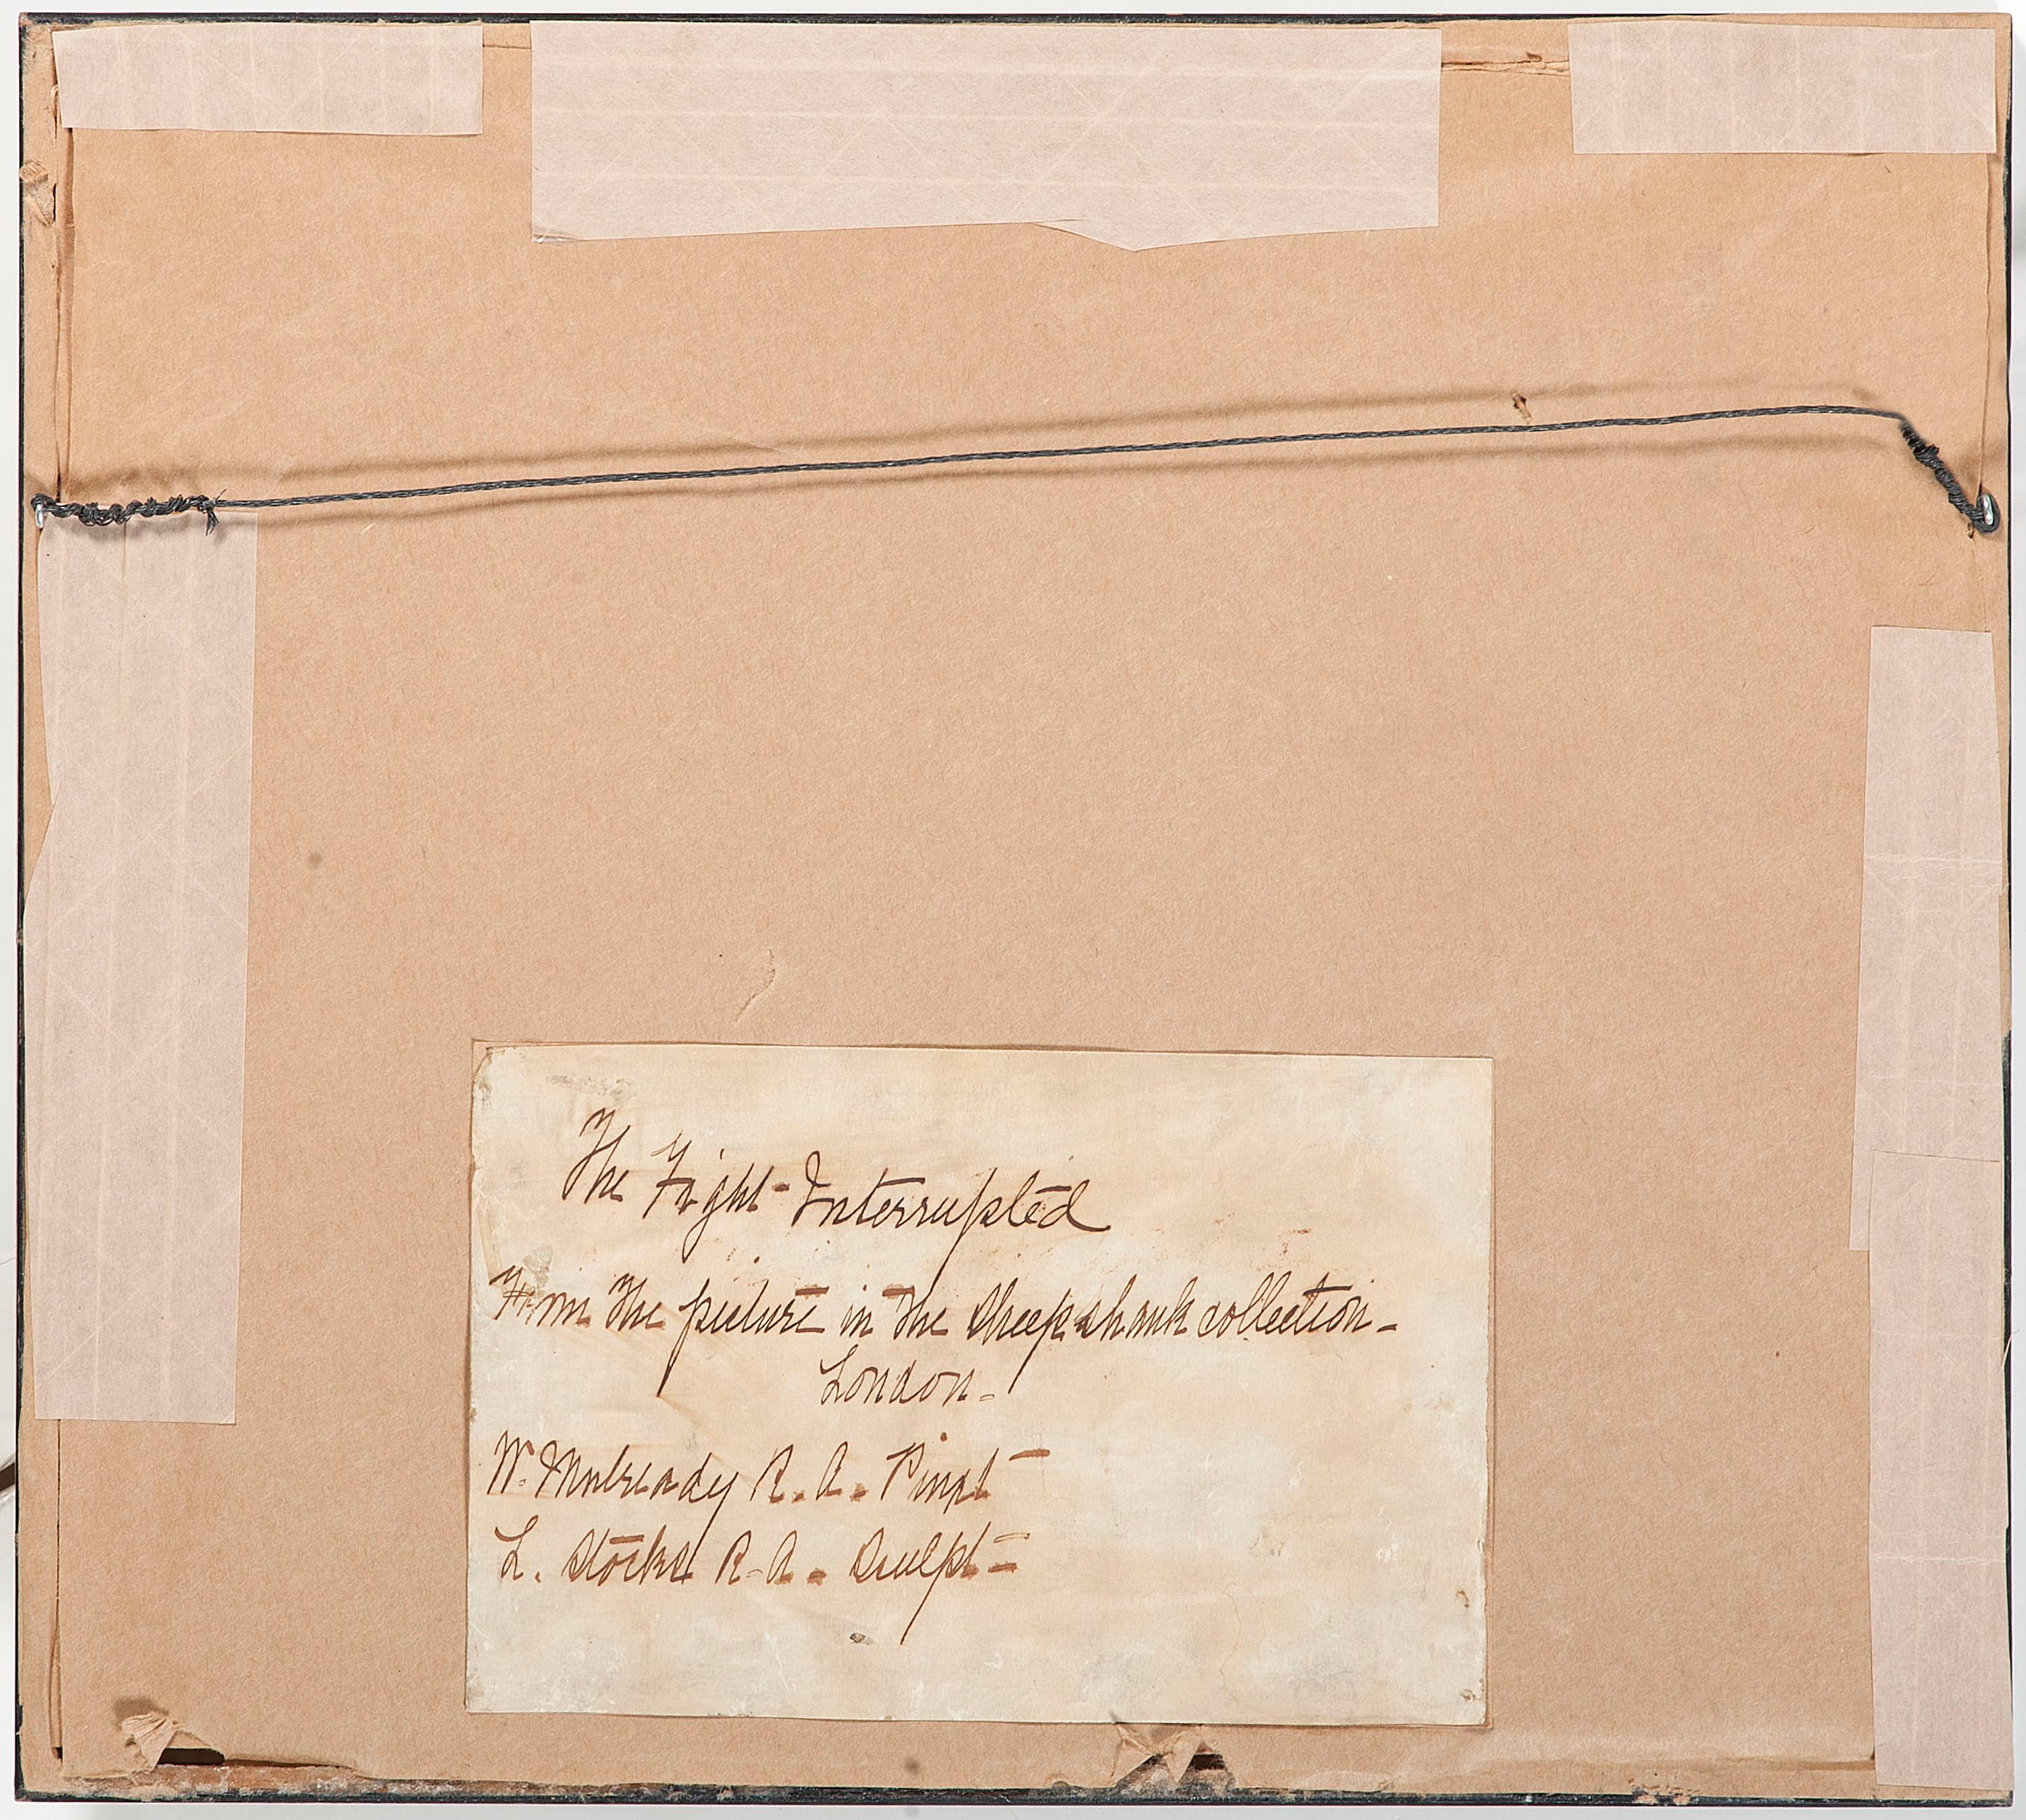 The Fight - Interrupted
From the picture in the Sheepshank collection -
London -
W. Mulready R. A. Pinxt
L. Stocks R. A. Sculpt